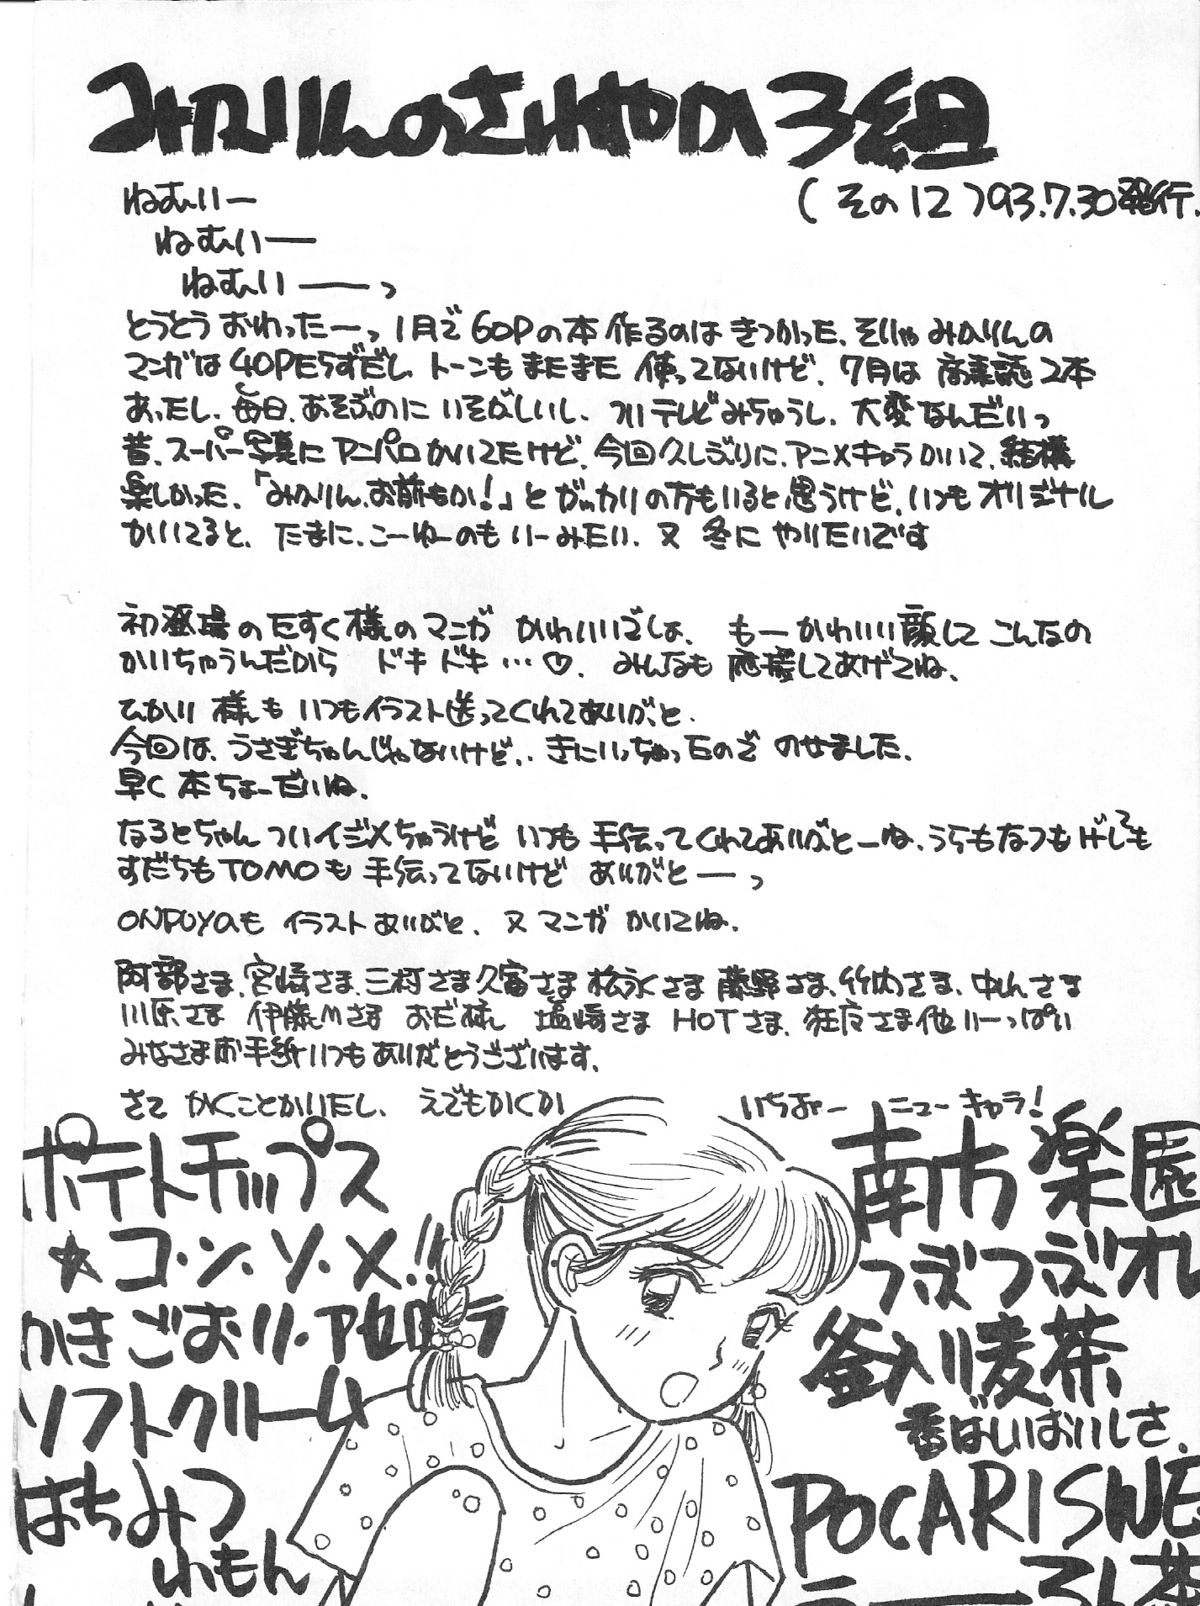 みかりんのさわやか3組
(その12)93.7.30発行.
ねむいー
ねむいー
ねむいーーっ
とうとうおわったーっ 1月で60Pの本作るのはきつかった. そりゃみかりんの
マンガは40Pたらずだし トーンもまたまた使ってないけど. 7月は 商業誌2本
あったし. 毎日. あそぶのに いそがしいし. ついテレビみちゃうし. 大変なんだいっ
昔. スーパー写真にアニパロかいてたけど. 今回久しぶりに. アニメキャラかいて. 結構
楽しかった. 「みかりん. お前もか!」とがっかりの方もいると思うけど. いつもオリジナル
かいてると. たまに. こーゆーのもいーみたい. 又 冬に やりたいです
初登場のたすく様のマンガ かわいいでしょ. もーかわいい顔して こんなの
かいちゃうんだから ドキドキ…♡. みんなも 応援してあげてね.
ひかり 様も いつもイラスト送ってくれてありがと.
今回は. うさぎちゃんじゃないけど.. きにいっちゃったので のせました.
早く 本ちょーだいね.
なるとちゃん ついイジメちゃうけど いつも 手伝ってくれてありがとーね. うらもなつもげしても
すだちもTOMOも 手伝ってないけど ありがとーーっ
ONPUYAも イラストありがと. 又 マンガ かいてね.
阿部さま. 宮崎さま. 三村さま 久富さま 松永さま 藤野さま. 竹内さま. 中んさま
川原さま 伊藤Mさま おだ様 塩崎さま HOTさま. 狂左さま他 いーっぱい
みなさまお手紙いつもありがとうございます.
さて かくことかいたし. えでもかくか
いちおー ニューキャラ!
ポテトチップス
★コ・ン・ソ・メ!!
かきごおり・アセロラ
ソフトクリーム
はちみつ
れもん
南方楽園
つぶつぶオレ
釜入り麦茶
番ばしいおいしさ.
POCARISWE